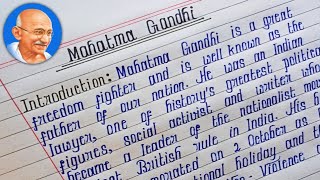 Mahatma Gandhi
Introduction: Mahatma Gandhi is a great
freedom fighter and is well known as the
father of our nation. He was an Indian
lawyer, one of history's greatest political
figures, social activist and writer who
became a leader of the nationalist mov
British rule in India. His
orated on 2 October as
tional holiday and th
Violence